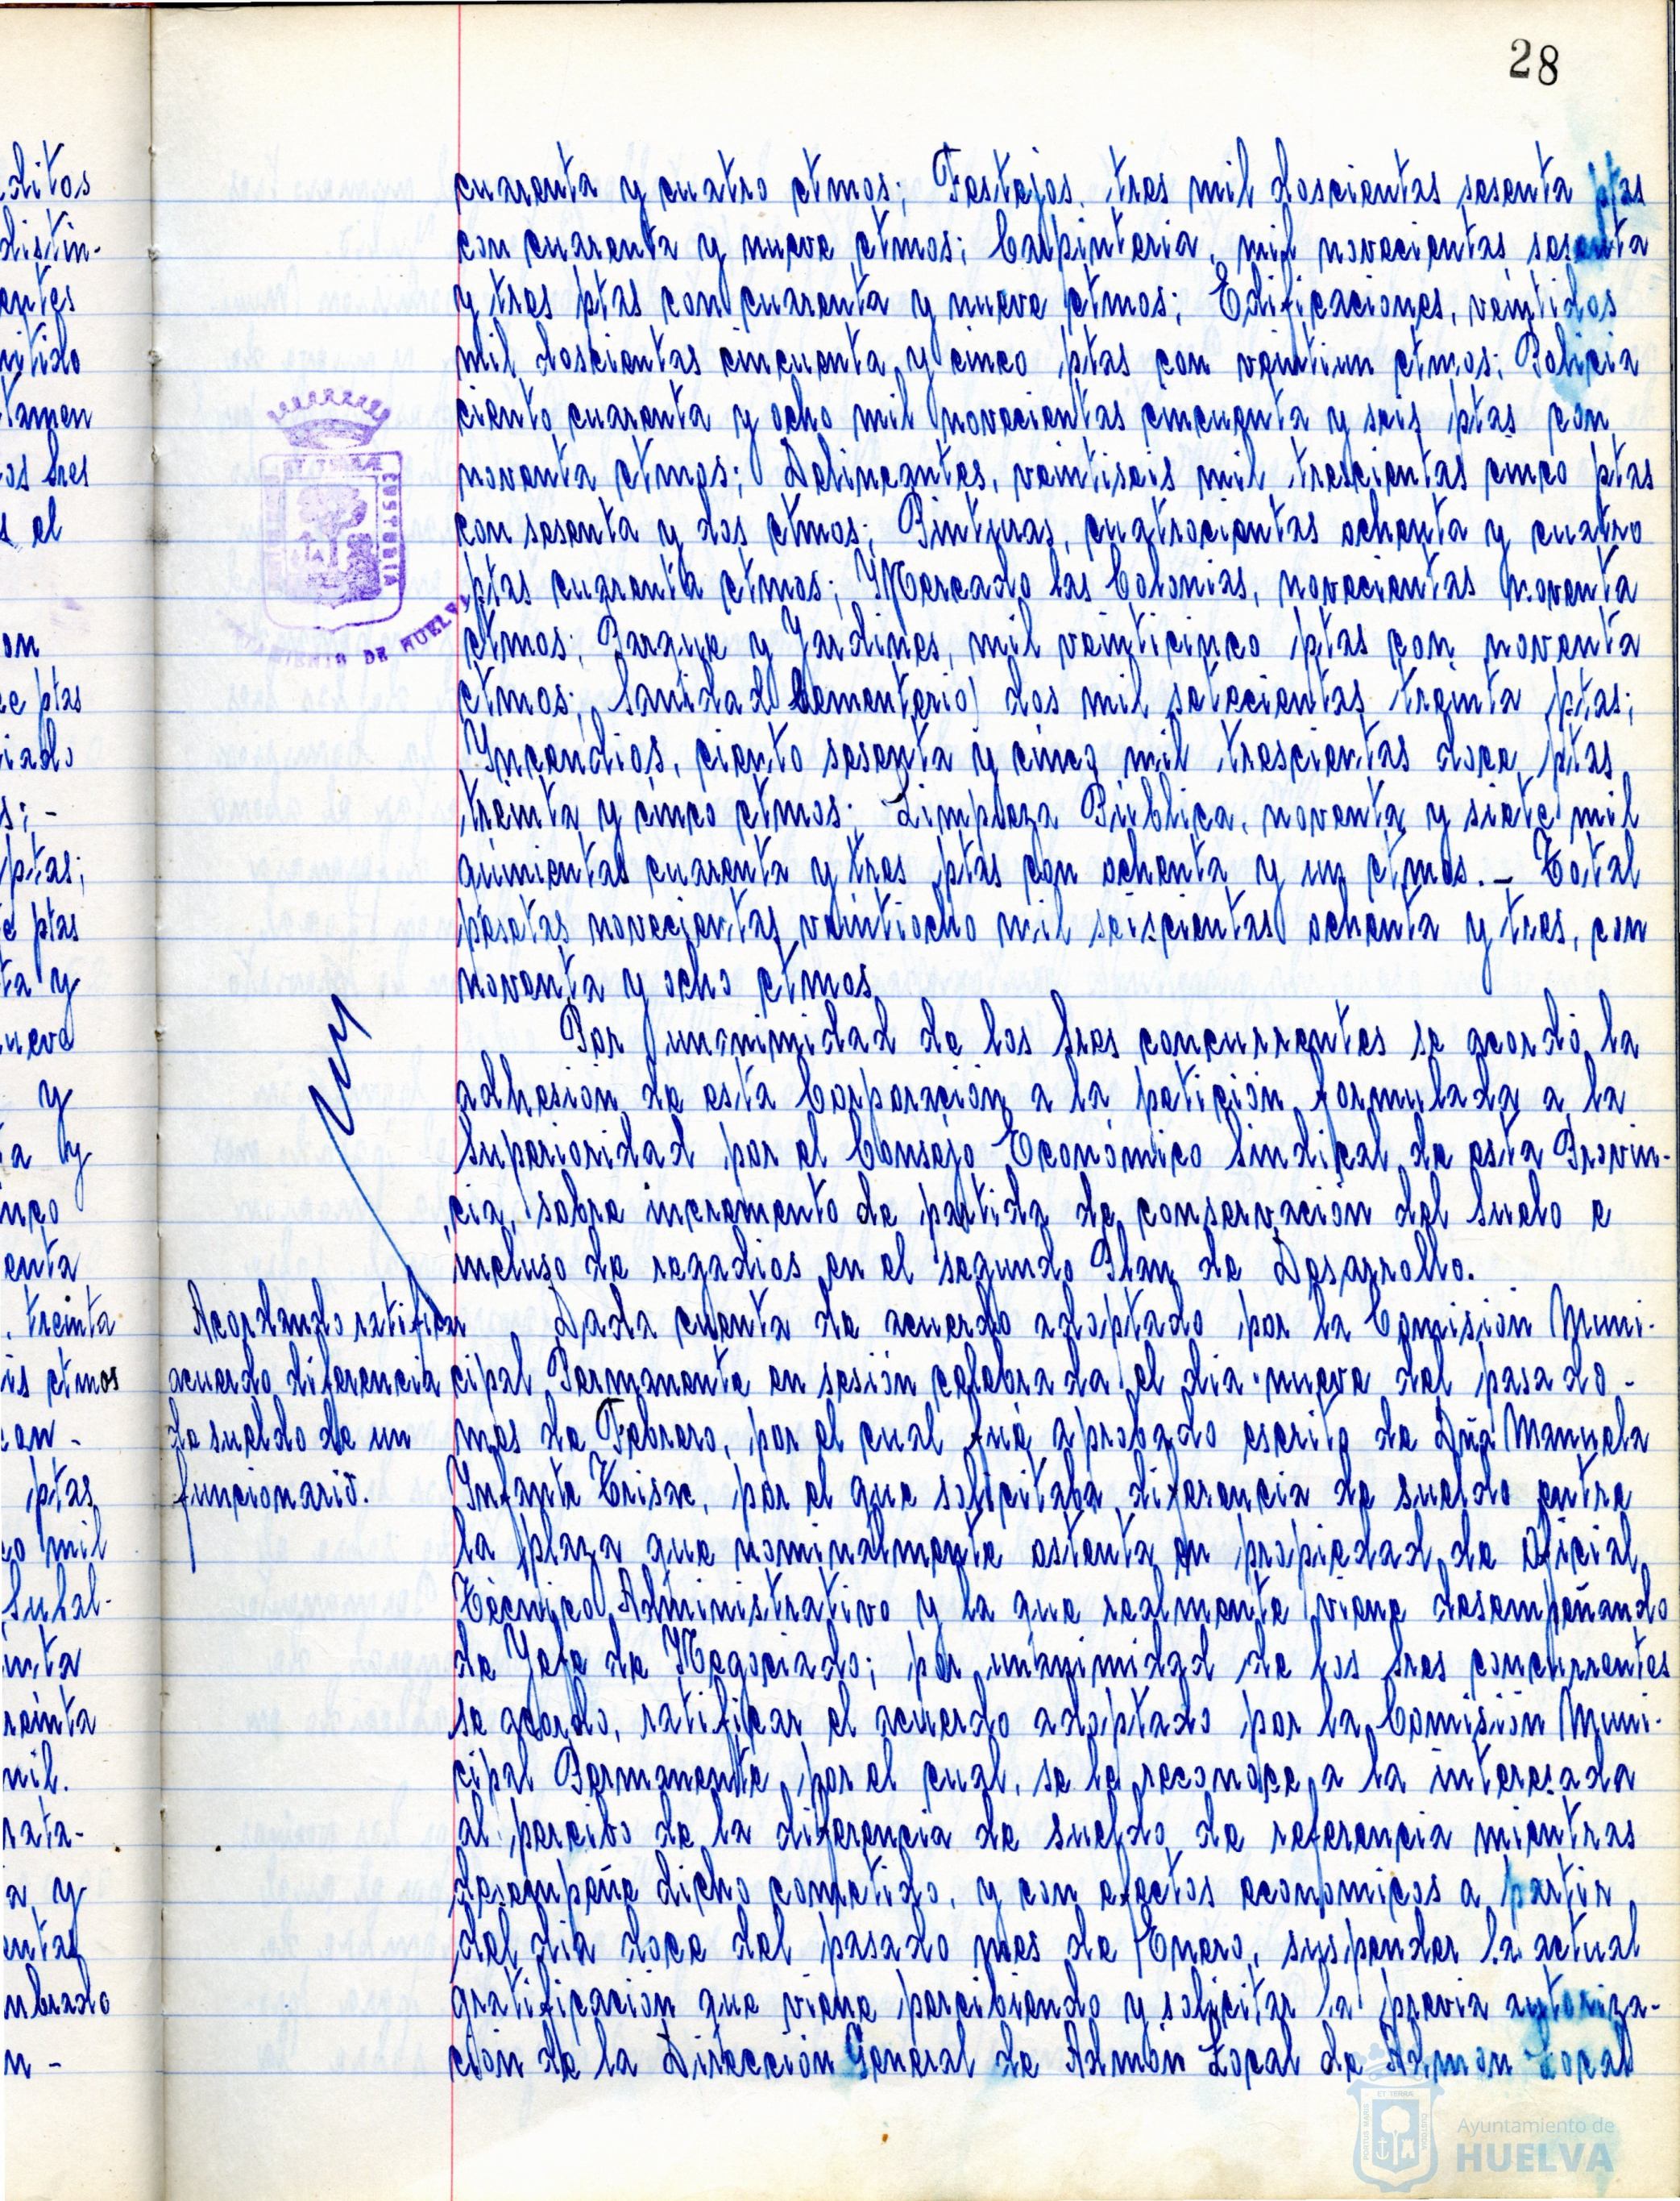 28
cuarenta y cuatro ctmos; Festejos, tres mil doscientas sesenta ptas
con cuarenta y nueve ctmos; Carpinteria, mil novecientas sesenta
y tres ptas con cuarenta y nueve ctmos; Edificaciones, veintidos
mil doscientas cincuenta y cinco ptas con veintiun ctmos; Policia
ciento cuarenta y ocho mil novecientas cincuenta y seis ptas con
noventa ctmos; Delineantes, veintiseis mil trescientas cinco ptas
con sesenta y dos ctmos; Pinturas, cuatrocientas ochenta y cuatro
ptas cuarenta ctmos; Mercado las Colonias, novecientas noventa
ctmos; Parque y Jardines, mil veinticinco ptas con noventa
ctmos; Sanidad Cementerio) dos mil setecientas treinta ptas;
Yncendios, ciento sesenta y cinco mil trescientas doce ptas
treinta y cinco ctmos; Limpieza Pública, noventa y siete mil
quinientas cuarenta y tres ptas con ochenta y un ctmos.- Total
pesetas novecientas veintiocho mil seiscientas ochenta y tres, con
noventa y ocho ctmos.
Por unanimidad de los Sres concurrentes se acordó la
adhesión de esta Corporación a la petición formulada a la
Superioridad por el Consejo Económico Sindical de esta Provin-
cia, sobre incremento de partida de conservación del suelo e
incluso de regadios en el segundo Plan de Desarrollo.
Acordando ratificar
acuerdo diferencia
de sueldo de un
funcionario.
Dada cuenta de acuerdo adoptado por la Comisión Muni-
cipal Permanente en sesión celebrada el dia nueve del pasado-
mes de Febrero, por el cual fué aprobado escrito de Dña Manuela
Infante Trisac, por el que solicitaba diferencia de sueldo entre
la plaza que nominalmente ostenta en propiedad de Oficial
Técnico Administrativo y la que realmente viene desempeñando
de Yefe de Negociado; por unanimidad de los Sres concurrentes
se acordo, ratificar el acuerdo adoptado por la Comisión Muni-
cipal Permanente, por el cual, se le reconoce a la interesada
al percibo de la diferencia de sueldo de referencia mientras
desempeñe dicho cometido, y con efectos economicos a partir
del dia doce del pasado mes de Enero, suspender la actual
gratificación que viene percibiendo y solicitar la previa autoriza-
ción de la Dirección General de Admón Local de Admon Local
ditos
distin-
entes
mitido
tamen
os Sres
s el
on
ce ptas
iado
s;-
ptas;
e ptas
ta y
ueve
y
a y
nco
enta
, treinta
is ctmos
con-
ptas
co mil
Subal-
nta
reinta
mil.
rata-
a y
entas
mbrado
n-
AYUNTAMIENTO DE HUELVA
Ayuntamiento de
HUELVA